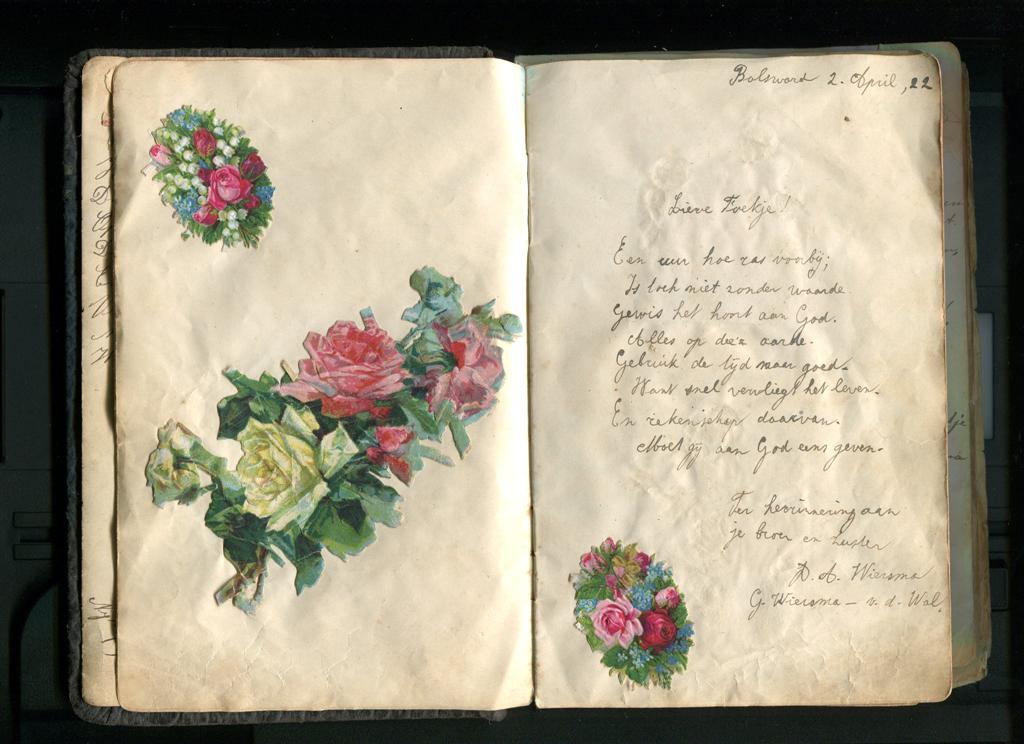 Bolsward 2. April, 22
Lieve Foekje!
Een uur hoe ras voorbij;
Is toch niet zonder waarde.
Gewis het hoort aan God.
Alles op deez aarde.
Gebruik de tijd maar goed.
Want snel vervliegt het leven.
En rekenschap daarvan.
Moet gij aan God eens geven.
Ter herinnering aan
je broer en zuster
D. A. Wiersma
G. Wiersma - v. d. Wal.